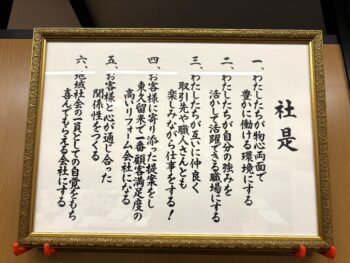 社是
一、わたしたちが物心両面で
豊かに働ける環境にする
二、わたしたちが自分の強みを
活かして活躍できる職場にする
三、わたしたちが互いに仲良く
取引先や職人さんとも
楽しみながら仕事をする！
四、お客様に寄り添った提案をし
東久留米で一番顧客満足度の
高いリフォーム会社になる
五、お客様と心が通じ合った
関係性をつくる
六、地域社会の一員としての自覚をもち
喜んでもらえる会社にする